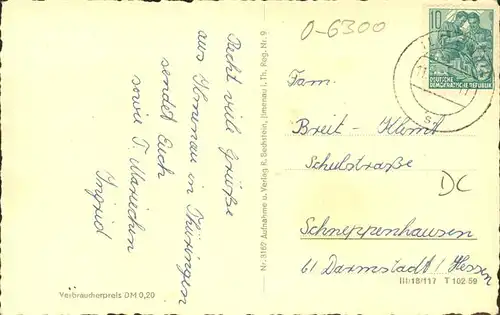 Recht viele Grüße
aus Ilmenau in Thüringen
sendet Euch
sowie T. Mariechen
Ingrid
Verbraucherpreis DM 0,20
Nr. 3167 Aufnahme u. Verlag R. Bechstein, Ilmenau i. Th. Reg. Nr. 9
O-6300
10
DEUTSCHE
DEMOKRATISCHE REPUBLIK
Fam.
Breit - Klimt
Schulstraße
DC
Schneppenhausen
61 Darmstadt / Hessen
III/18/117 T 102 59